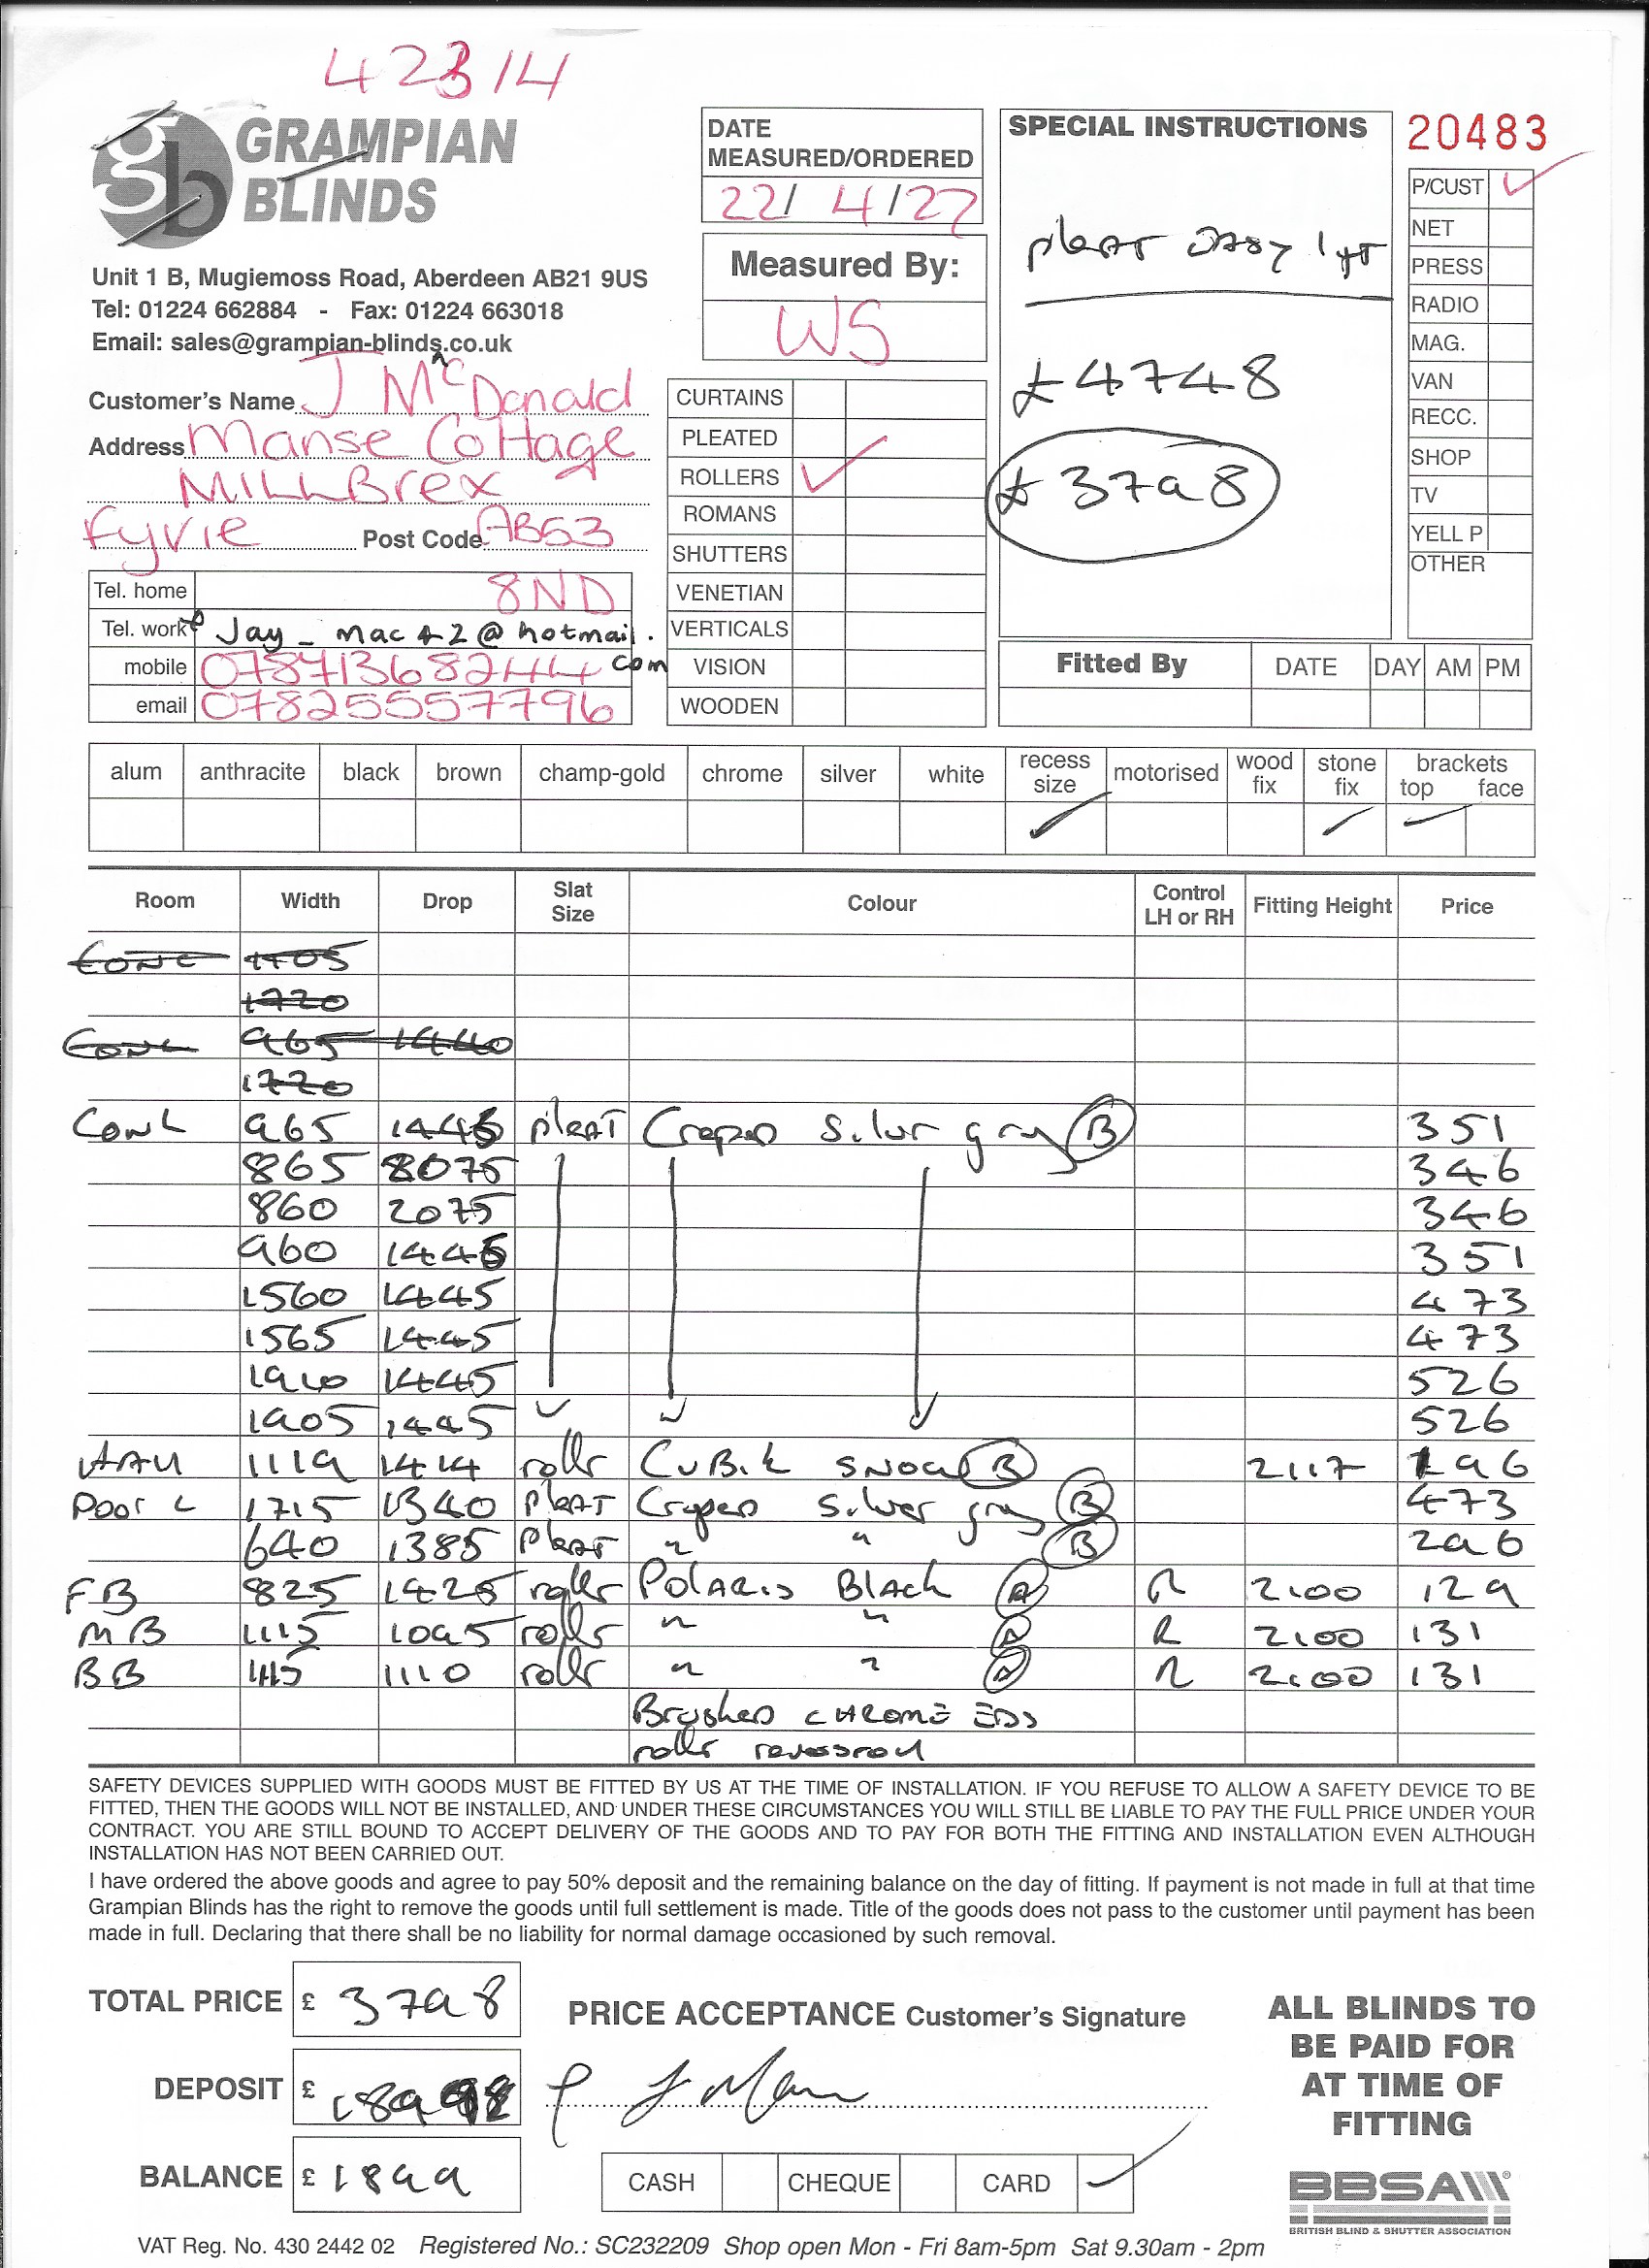 42314
GRAMPIAN
BLINDS
Unit 1 B, Mugiemoss Road, Aberdeen AB21 9US
Tel: 01224 662884 - Fax: 01224 663018
Email: sales@grampian-blinds.co.uk
Customer's Name J McDonald
Address Manse Cottage
MILLBrex
Fyvie Post Code AB53
Tel. home 8ND
Tel. work Jay_mac42@hotmail.
mobile 07871368244 com
email 07825557796
DATE
MEASURED/ORDERED
22/ 4/22
Measured By:
WS
CURTAINS
PLEATED
ROLLERS ✓
ROMANS
SHUTTERS
VENETIAN
VERTICALS
VISION
WOODEN
SPECIAL INSTRUCTIONS
pleat
£4748
£3798
20483
P/CUST ✓
NET
PRESS
RADIO
MAG.
VAN
RECC.
SHOP
TV
YELL P
OTHER
Fitted By DATE DAY AM PM
alum anthracite black brown champ-gold chrome silver white recess size ✓ motorised wood fix stone fix ✓ brackets top ✓ face
Room Width Drop Slat Size Colour Control LH or RH Fitting Height Price
1705
1720
965 1440
1720
965 1445 pleat silver gray B 351
865 2075 346
860 2075 346
960 1445 351
1560 1445 473
1565 1445 473
1910 1445 526
1905 1445 526
1119 1414 rollr CUBik SNOW B 2117 196
Door L 1715 1340 pleat silver gray B 473
640 1385 pleat " " B 296
FB 825 1425 rollr POLARis BLAck A R 2100 129
MB 1115 1095 rollr " " A R 2100 131
BB 1115 1110 rollr " " A R 2100 131
Brushed CHROME
rollr
SAFETY DEVICES SUPPLIED WITH GOODS MUST BE FITTED BY US AT THE TIME OF INSTALLATION. IF YOU REFUSE TO ALLOW A SAFETY DEVICE TO BE
FITTED, THEN THE GOODS WILL NOT BE INSTALLED, AND UNDER THESE CIRCUMSTANCES YOU WILL STILL BE LIABLE TO PAY THE FULL PRICE UNDER YOUR
CONTRACT. YOU ARE STILL BOUND TO ACCEPT DELIVERY OF THE GOODS AND TO PAY FOR BOTH THE FITTING AND INSTALLATION EVEN ALTHOUGH
INSTALLATION HAS NOT BEEN CARRIED OUT.
I have ordered the above goods and agree to pay 50% deposit and the remaining balance on the day of fitting. If payment is not made in full at that time
Grampian Blinds has the right to remove the goods until full settlement is made. Title of the goods does not pass to the customer until payment has been
made in full. Declaring that there shall be no liability for normal damage occasioned by such removal.
TOTAL PRICE £ 3798
DEPOSIT £
BALANCE £ 1899
PRICE ACCEPTANCE Customer's Signature
CASH CHEQUE CARD ✓
ALL BLINDS TO
BE PAID FOR
AT TIME OF
FITTING
BBSA
BRITISH BLIND & SHUTTER ASSOCIATION
VAT Reg. No. 430 2442 02 Registered No.: SC232209 Shop open Mon - Fri 8am-5pm Sat 9.30am - 2pm